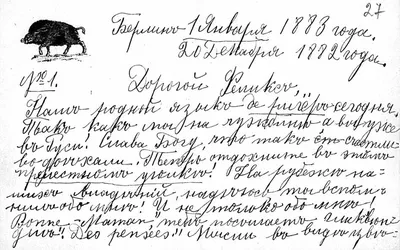 27
Берлинъ 1 Января 1883 года.
20 Декабря 1882 года.
№ 1. Дорогой Феликсъ,
Нашъ родной языкъ de rigueur сегодня.
Такъ какъ мы на лужайкѣ, а вы уже
въ Гуси! Слава Богу, что такъ счастли-
во доѣхали. Теперь отдохните въ этомъ
прелестномъ уголкѣ! На рубежѣ на-
шихъ владѣній, надѣюсь ты вспом-
нилъ обо мнѣ! И не только обо мнѣ!
"Bonne-Maman", тебѣ посылаетъ
"Des pensées" Мысли въ видѣ